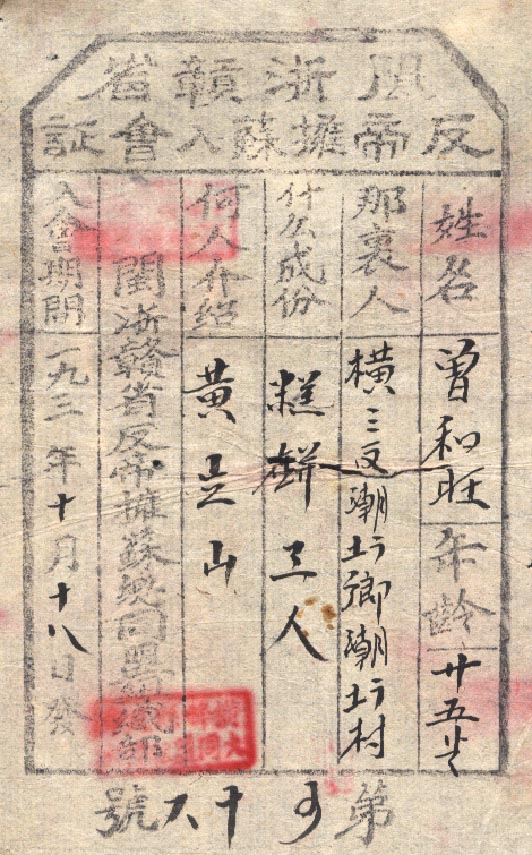 閩浙贛省
反帝擁蘇入會証
姓名 曾和旺 年齡 廿五岁
那裏人 橫三区潮士卿潮士村
什么成份 糕餅工人
何人介绍 黃品山
閩浙贛省反帝擁蘇大同盟組織部
入會期間 一九三年十月十八日發
第 十六號